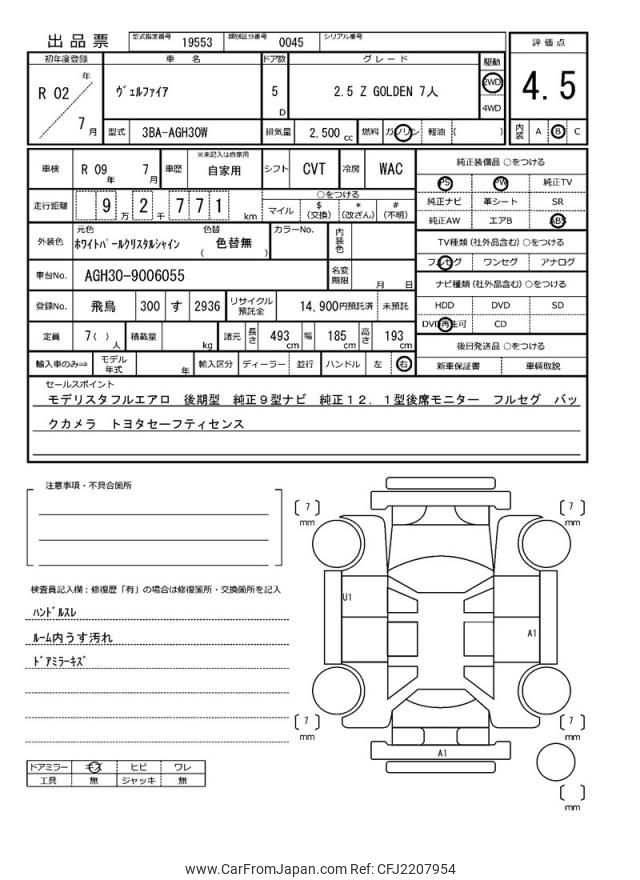 出品票 型式指定番号 19553 類別区分番号 0045 シリアル番号
評価点
4.5
内装 A B C
初年度登録 車名 ドア数 グレード 駆動
R 02 年 7 月
ヴェルファイア 5 D 2.5 Z GOLDEN 7人 2WD 4WD
型式 3BA-AGH30W 排気量 2,500 cc 燃料 ガソリン 軽油 ( )
車検 R 09 年 7 月 車歴 ※未記入は自家用 自家用 シフト CVT 冷房 WAC
走行距離 9 万 2 千 7 7 1 km ○をつける マイル $ (交換) * (改ざん) # (不明)
外装色 元色 ホワイトパールクリスタルシャイン 色替 ( 色替無 ) カラーNo. 内装色
車台No. AGH30-9006055 名変期限 月 日
登録No. 飛鳥 300 す 2936 リサイクル預託金 14,900円預託済 未預託
定員 7( ) 人 積載量 kg 諸元 長さ 493 cm 幅 185 cm 高さ 193 cm
輸入車のみ⇒ モデル年式 年 輸入区分 ディーラー 並行 ハンドル 左 右
純正装備品 ○をつける
PS PW 純正TV
純正ナビ 革シート SR
純正AW エアB ABS
TV種類(社外品含む) ○をつける
フルセグ ワンセグ アナログ
ナビ種類(社外品含む) ○をつける
HDD DVD SD
DVD再生可 CD
後日発送品 ○をつける
新車保証書 車輌取説
セールスポイント
モデリスタフルエアロ 後期型 純正9型ナビ 純正12.1型後席モニター フルセグ バッ
クカメラ トヨタセーフティセンス
注意事項・不具合箇所
検査員記入欄:修復歴「有」の場合は修復箇所・交換箇所を記入
ハンドルスレ
ルーム内うす汚れ
ドアミラーキズ
ドアミラー キズ ヒビ ワレ
工具 無 ジャッキ 無
[ 7 ] mm
[ 7 ] mm
U1
A1
[ 7 ] mm
[ 7 ] mm
A1
[ ] mm
www.CarFromJapan.com Ref: CFJ2207954